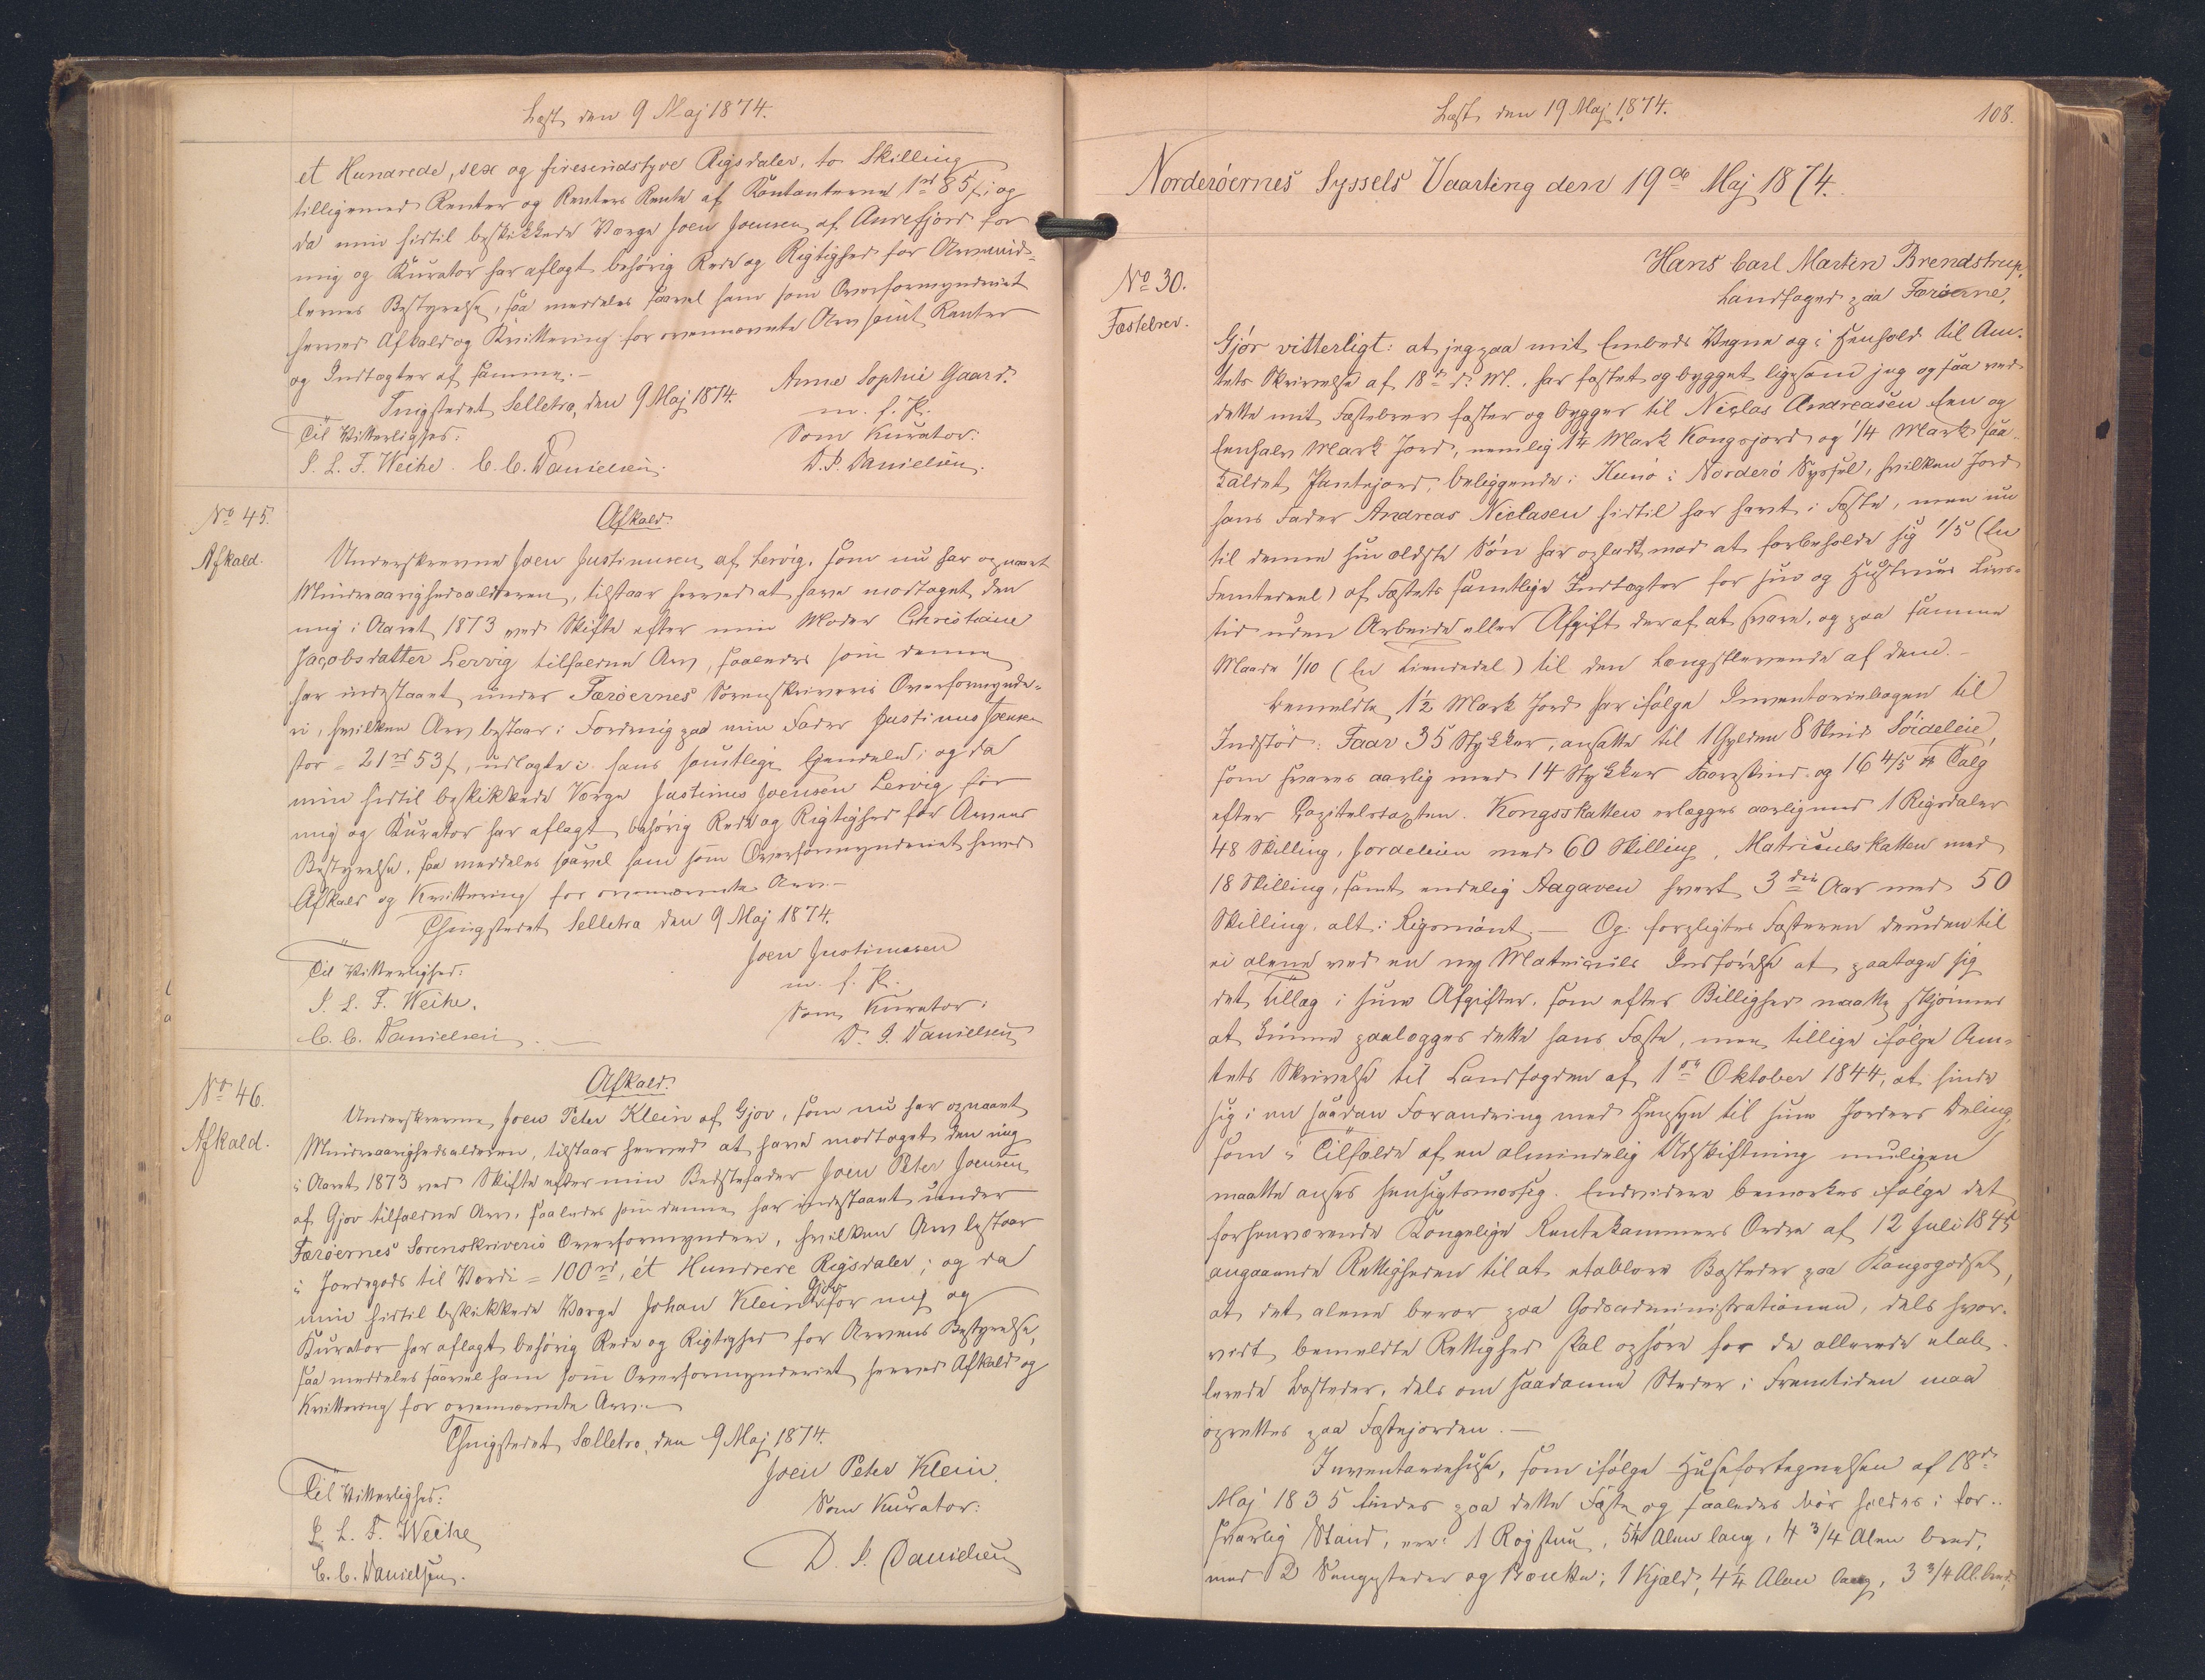 Læst den 9 Maj 1874.
et Hundrede, sex og firesindstyve Rigsdaler, to Skilling
tilligemed Renter og Renters Rente af Contanterne 1rd 85 s; og
da min hidtil beskikkede Værge Joen Joensen af Andefjord for
mig og Kurator har aflagt behörig Rede og Rigtighed for Arvemid-
lernes Bestyrelse, saa meddeles saavel ham som Overformynderiet
herved Afkald og Kvittering for ovennævnte Arv samt Renter
og Indtægter af samme.-
Tingstedet Selletræ, den 9 Maj 1874.
Anne Sophie Gaard.
m. f. P.
Til Vitterlighed:
Som Kurator:
J. L. F. Weihe. C. C. Danielsen.
D. P. Danielsen.
No 45.
Afkald.
Afkald.
Underskrevne Joen Justinusen af Lervig, som nu har opnaaet
Mindreaarighedsalderen, tilstaar herved at have modtaget den
mig i Aaret 1873 ved Skifte efter min Moder Christiane
Jacobsdatter Lervig tilfaldne Arv, saaledes som denne
har indestaaet under Færöernes Sorenskriveris Overformynde-
ri, hvilken Arv bestaar i Fordring paa min Fader Justinus Joensen
stor = 21rd 53 s, udlagte i hans samtlige Ejendele; og da
min hidtil beskikkede Værge Justinus Joensen Lervig for
mig og Kurator har aflagt behörig Rede og Rigtighed for Arvens
Bestyrelse, saa meddeles saavel ham som Overformynderiet herved
Afkald og Kvittering for ovennævnte Arv.-
Thingstedet Selletræ den 9 Maj 1874.
Joen Justinusen
m. f. P.
Til Vitterlighed:
J. L. F. Weihe.
Som Kurator:
C. C. Danielsen
D. P. Danielsen
No 46.
Afkald.
Afkald.
Underskrevne Joen Peter Klein af Gjov, som nu har opnaaet
Mindreaarighedsalderen, tilstaar herved at have modtaget den mig
i Aaret 1873 ved Skifte efter min Bedstefader Joen Peter Joensen
af Gjov tilfaldne Arv, saaledes som denne har indestaaet under
Færöernes Sorenskriveris Overformynderi, hvilken Arv bestaar
i Jordegods til Værdi = 100rd, ét Hundrede Rigsdaler; og da
min hidtil beskikkede Værge Johan Klein Gjov for mig og
Kurator har aflagt behörig Rede og Rigtighed for Arvens Bestyrelse,
saa meddeles saavel ham som Overformynderiet herved Afkald og
Kvittering for ovennævnte Arv.-
Thingstedet Selletræ, den 9 Maj 1874.
Joen Peter Klein.
Til Vitterlighed:
Som Kurator:
J. L. F. Weihe
C. C. Danielsen.
D. P. Danielsen
Læst den 19 Maj 1874.
108.
Norderöernes Syssels Vaarting den 19de Maj 1874.
No 30.
Fæstebrev.
Hans Carl Martin Brendstrup,
Landfoged paa Færöerne,
Gjör vitterligt: at jeg paa mit Embeds Vegne og i Henhold til Am-
tets Skrivelse af 18de d. M., har fæstet og bygget ligesom jeg ogsaa ved
dette mit Fæstebrev fæster og bygger til Niclas Andreasen En og
Enhalv Mark Jord, nemlig 1 1/4 Mark Kongsjord og 1/4 Mark saa-
kaldet Pantejord, beliggende i Kunö i Norderö Syssel, hvilken Jord
hans Fader Andreas Niclasen hidtil har havt i Fæste, men nu
til denne sin ældste Sön har opladt mod at forbeholde sig 1/5 (En
Femtedeel) af Fæstets samtlige Indtægter for sin og Hustrues Livs-
tid uden Arbeide eller Afgift deraf at svare, og paa samme
Maade 1/10 (En Tiendedel) til den Længstlevende af dem.-
Bemeldte 1 1/2 Mark Jord har ifölge Inventariebogen til
Indstöd: Faar 35 Stykker, ansatte til 1 Gylden 8 Skind Söideleie,
som svares aarlig med 14 Stykker Faareskind og 16 4/5 ℔ Talg
efter Capitelstaxten. Kongsskatten erlægges aarlig med 1 Rigsdaler
48 Skilling, Jordeleien med 60 Skilling, Matriculskatten med
18 Skilling, samt endelig Aagaven hvert 3die Aar med 50
Skilling, alt i Rigsmönt.- Og forpligtes Fæsteren desuden til
ei alene ved en ny Matriculs Indförelse at paatage sig
det Tillæg i hine Afgifter, som efter Billighed maatte skjönnes
at kunne paalægges dette hans Fæste, men tillige ifölge Am-
tets Skrivelse til Landfogden af 1ste Oktober 1844, at finde
sig i en saadan Forandring med Hensyn til hine Jorders Deling,
som i Tilfælde af en almindelig Udskiftning muligen
maatte anses hensigtsmæssig. Endvidere bemærkes ifölge det
forhenværende Kongelige Rentekammers Ordre af 12 Juli 1845
angaaende Rettigheden til at etablere Bosteder paa Kongsgodset,
at det alene beror paa Godsadministrationen, dels hvor-
vidt bemeldte Rettighed skal ophöre for de allerede etab-
lerede Bosteder, dels om saadanne Steder i Fremtiden maa
oprettes paa Fæstejorden.-
Inventariehuse, som ifölge Husefortegnelsen af 18de
Maj 1835 findes paa dette Fæste og saaledes bör holdes i for-
svarlig Stand, ere: 1 Rögstue, 5 1/4 Alen lang, 4 3/4 Alen bred,
med 2 Sengesteder og Bænke; 1 Kjæld, 4 1/4 Alen lang, 3 3/4 Al. bred,